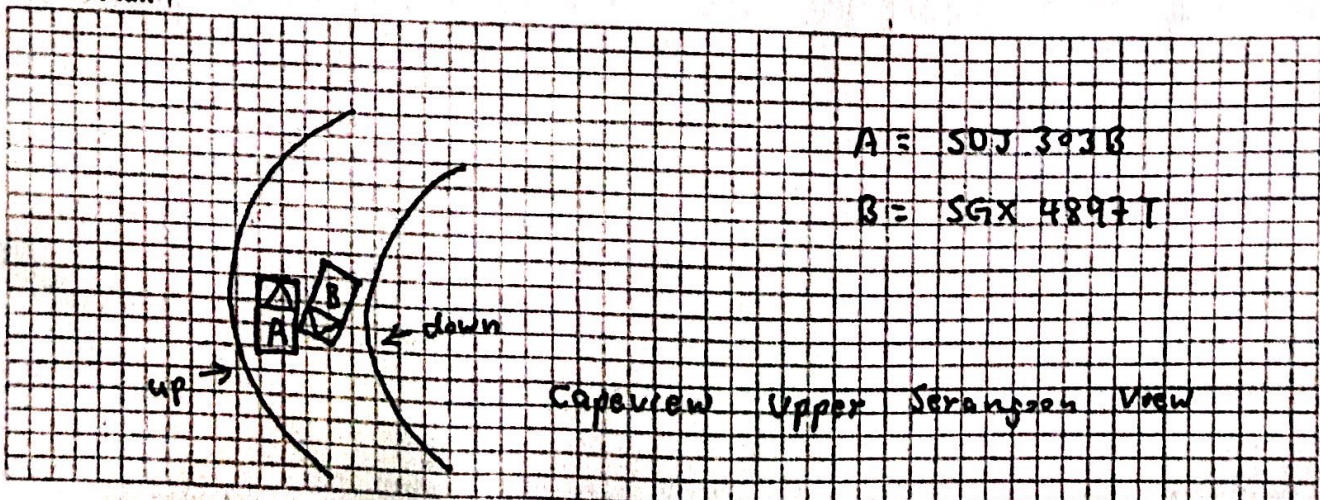 A = SDJ 303B
B = SGX 4897T
B
A
down
up
Capeview Upper Serangoon View